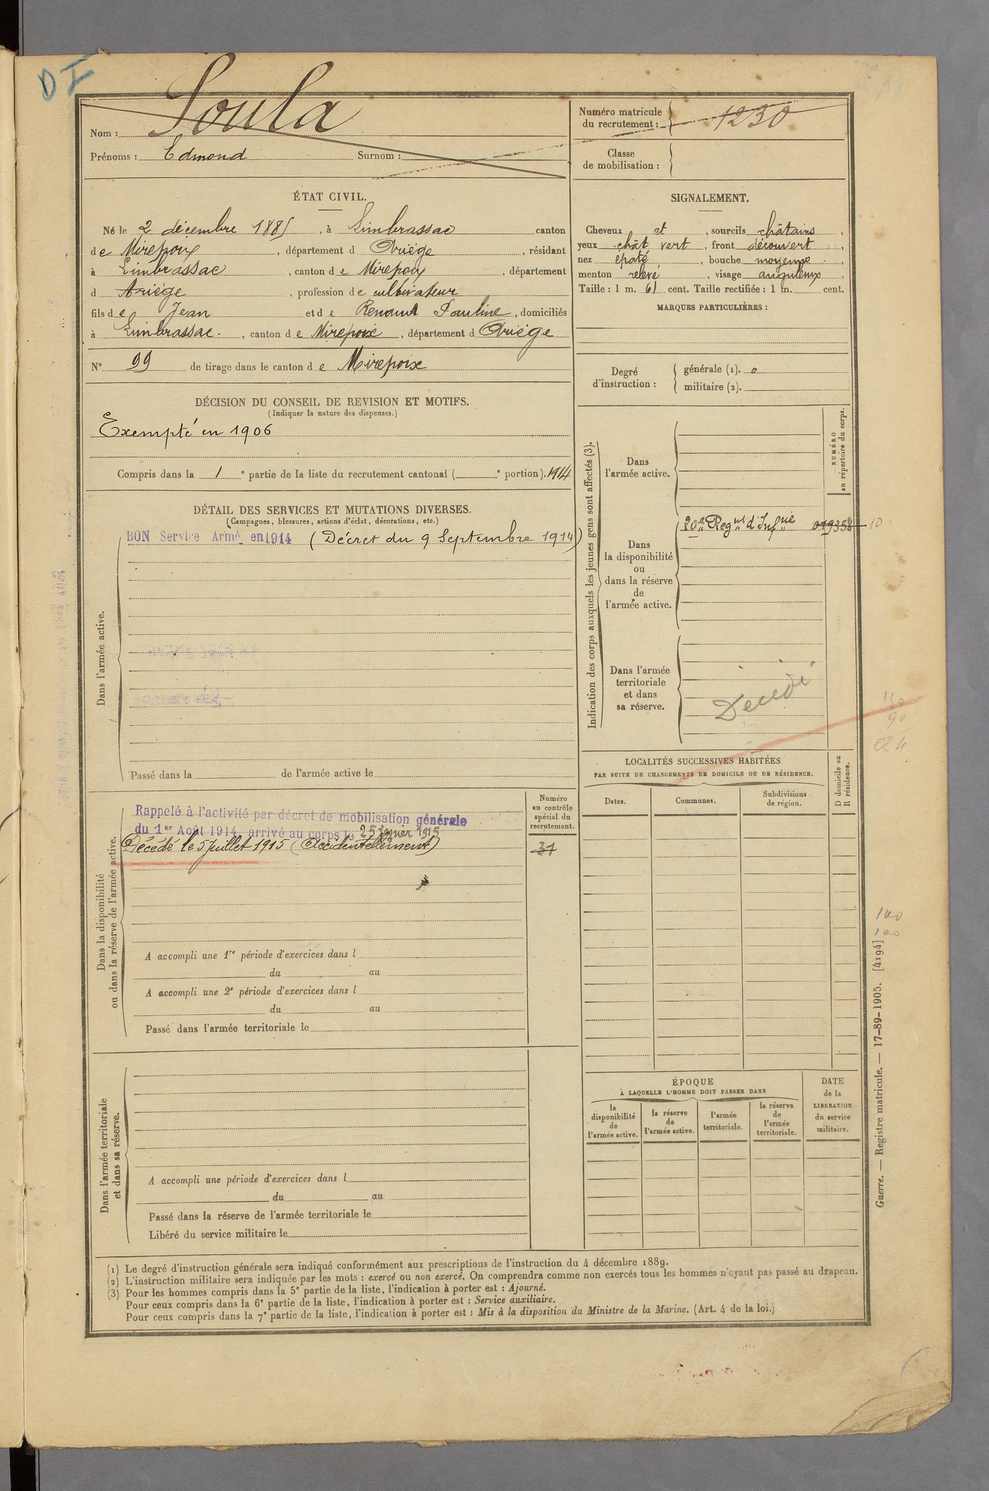 DI
Nom : Soula
Prénoms : Edmond Surnom :
Numéro matricule du recrutement : 1230
Classe de mobilisation :
ÉTAT CIVIL.
Né le 2 décembre 1885, à Limbrassac canton
de Mirepoix, département d Ariège, résidant
à Limbrassac, canton de Mirepoix, département
d Ariège, profession de cultivateur
fils de Jean et de Renaud Pauline, domiciliés
à Limbrassac, canton de Mirepoix, département d Ariège
N° 99 de tirage dans le canton de Mirepoix
SIGNALEMENT.
Cheveux et, sourcils châtains,
yeux chât vert, front découvert,
nez épaté, bouche moyenne,
menton relevé, visage anguleux.
Taille : 1 m. 61 cent. Taille rectifiée : 1 m. cent.
MARQUES PARTICULIÈRES :
Degré d'instruction : générale (1). 0
militaire (2).
DÉCISION DU CONSEIL DE REVISION ET MOTIFS.
(Indiquer la nature des dispenses.)
Exempté en 1906
Compris dans la 1e partie de la liste du recrutement cantonal ( e portion). 1914
DÉTAIL DES SERVICES ET MUTATIONS DIVERSES.
(Campagnes, blessures, actions d'éclat, décorations, etc.)
BON Service Armé en 1914 (Décret du 9 Septembre 1914)
Dans l'armée active.
Passé dans la de l'armée active le
Indication des corps auxquels les jeunes gens sont affectés (3).
NUMÉRO au répertoire du corps.
Dans l'armée active.
20e Regnt d'Infrie 019358 10
Dans la disponibilité ou dans la réserve de l'armée active.
Dans l'armée territoriale et dans sa réserve.
Décédé
110
90
Dans la disponibilité ou dans la réserve de l'armée active.
Rappelé à l'activité par décret de mobilisation générale
du 1er Août 1914, arrivé au corps le 25 Janvier 1915
Décédé le 5 juillet 1915 (Accidentellement)
Numéro au contrôle spécial du recrutement.
31
A accompli une 1re période d'exercices dans l
du au
A accompli une 2e période d'exercices dans l
du au
Passé dans l'armée territoriale le
LOCALITÉS SUCCESSIVES HABITÉES
PAR SUITE DE CHANGEMENTS DE DOMICILE OU DE RÉSIDENCE.
Dates. Communes. Subdivisions de région.
D domicile ou R résidence.
100
100
Dans l'armée territoriale et dans sa réserve.
A accompli une période d'exercices dans l
du au
Passé dans la réserve de l'armée territoriale le
Libéré du service militaire le
ÉPOQUE
À LAQUELLE L'HOMME DOIT PASSER DANS
la disponibilité de l'armée active.
la réserve de l'armée active.
l'armée territoriale.
la réserve de l'armée territoriale.
DATE de la LIBÉRATION du service militaire.
Guerre. — Registre matricule. — 17-89-1905. [4194]
(1) Le degré d'instruction générale sera indiqué conformément aux prescriptions de l'instruction du 4 décembre 1889.
(2) L'instruction militaire sera indiquée par les mots : exercé ou non exercé. On comprendra comme non exercés tous les hommes n'ayant pas passé au drapeau.
(3) Pour les hommes compris dans la 5e partie de la liste, l'indication à porter est : Ajourné.
Pour ceux compris dans la 6e partie de la liste, l'indication à porter est : Service auxiliaire.
Pour ceux compris dans la 7e partie de la liste, l'indication à porter est : Mis à la disposition du Ministre de la Marine. (Art. 4 de la loi.)